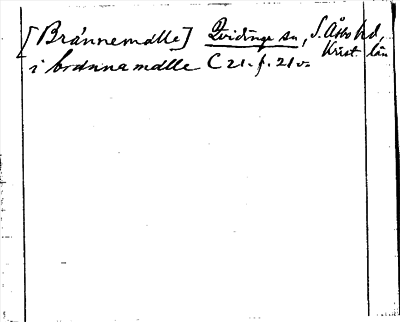 [Brännemölle] Qvidinge sn, S. Åsbo hd,
Krist. län
i brænnemølle C 21. f. 21 v.